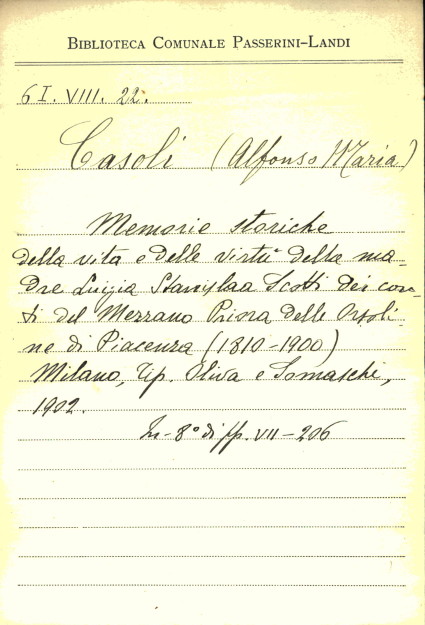 BIBLIOTECA COMUNALE PASSERINI-LANDI
6 I. VIII. 22.
Casoli (Alfonso Maria)
Memorie storiche
della vita e delle virtù della ma-
dre Luigia Stanislaa Scotti dei con-
ti del Mezzano Priora delle Orsoli-
ne di Piacenza (1810-1900)
Milano, Tip. Oliva e Somaschi,
1902.
In-8° di pp. VII-206